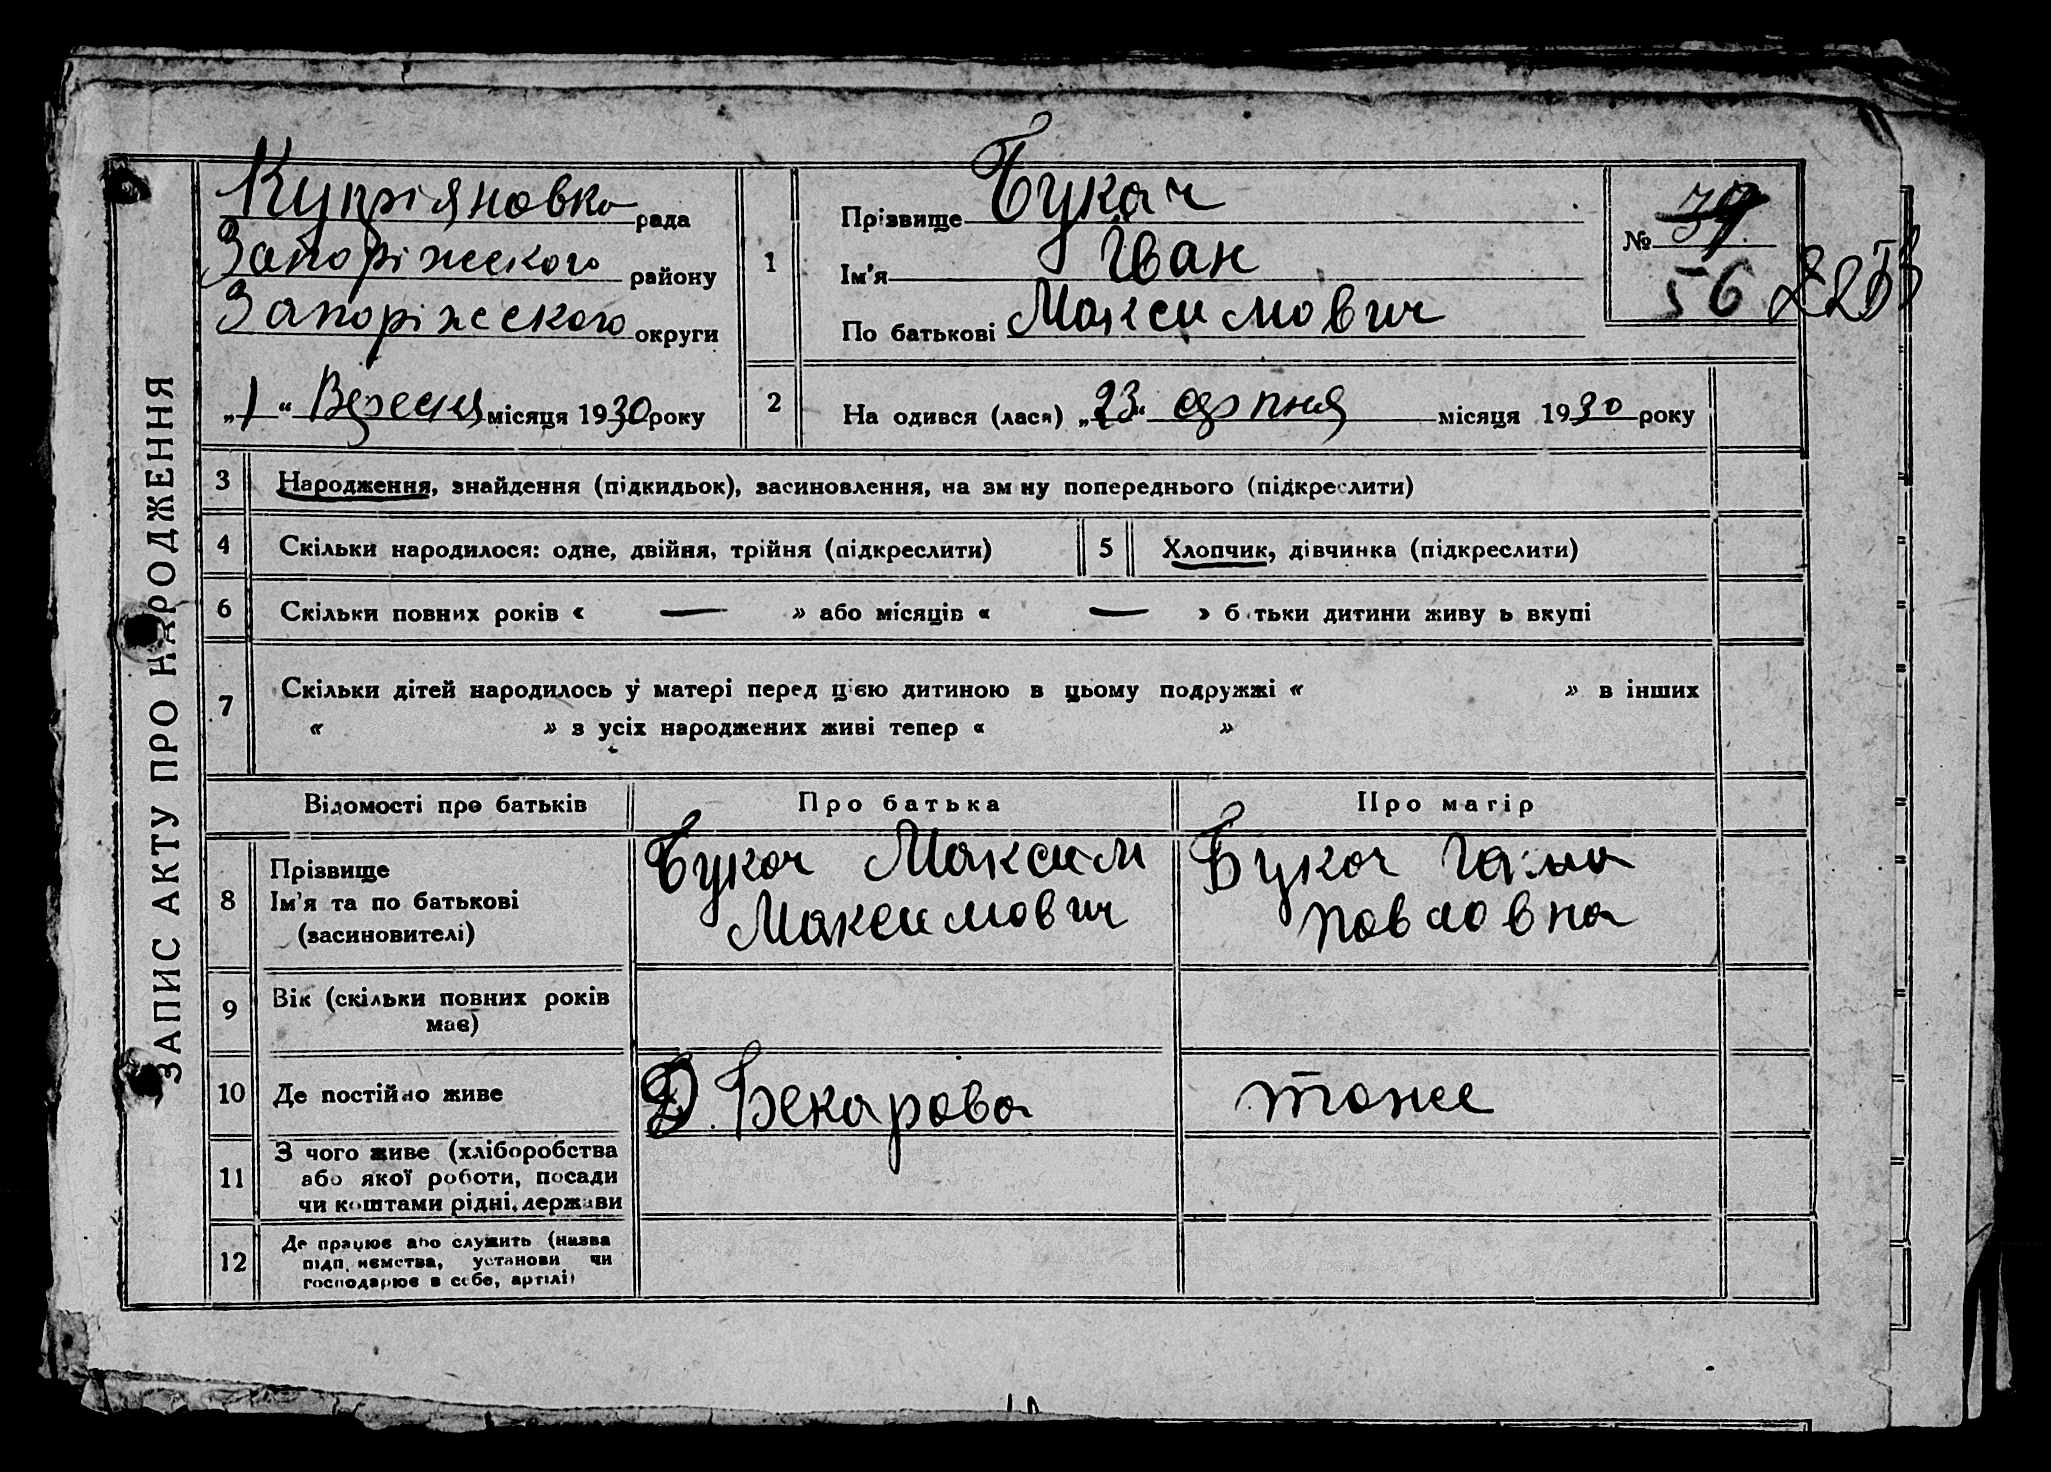 ЗАПИС АКТУ ПРО НАРОДЖЕННЯ
Купріяновка рада
Запоріжського району
Запоріжського округи
„1“ Вересня місяця 1930 року
1
Прізвище Букач
Ім'я Іван
По батькові Максимович
№ 39
56
2
На одився (лася) „23“ серпня місяця 1930 року
3 Народження, знайдення (підкидьок), засиновлення, на зм ну попереднього (підкреслити)
4 Скільки народилося: одне, двійня, трійня (підкреслити) 5 Хлопчик, дівчинка (підкреслити)
6 Скільки повних років « — » або місяців « — » б тьки дитини живу ь вкупі
7 Скільки дітей народилось у матері перед цією дитиною в цьому подружжі « » в інших
« » з усіх народжених живі тепер « »
Відомості про батьків Про батька Про матір
8 Прізвище
Ім'я та по батькові
(засиновителі)
Букач Максим
Максимович
Букач
Повловна
9 Вік (скільки повних років
має)
10 Де постійно живе Д. Бекарова тоже
11 З чого живе (хліборобства
або якої роботи, посади
чи коштами рідні, держави
12 Де працює або служить (назва
підп иємства, установи чи
господарює в себе, артілі)